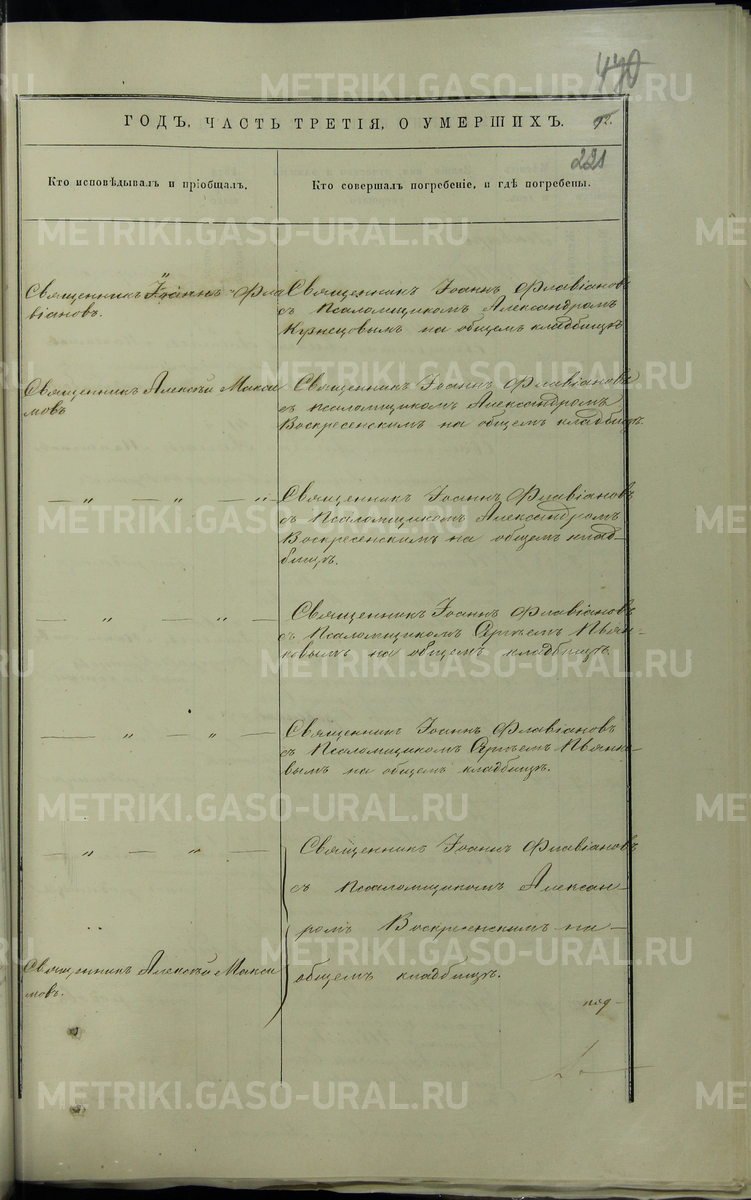 470
ГОДЪ, ЧАСТЬ ТРЕТІЯ, О УМЕРШИХЪ.
221
Кто исповѣдывалъ и пріобщалъ.
Кто совершалъ погребеніе, и гдѣ погребены.
Священникъ Іоаннъ Фла
віановъ.
Священникъ Іоаннъ Флавіановъ
съ Псаломщикомъ Александромъ
Кузнецовымъ на общемъ кладбищѣ
Священникъ Алексѣй Макси
мовъ
Священникъ Іоаннъ Флавіановъ
съ псаломщикомъ Александромъ
Воскресенскимъ на общемъ кладбищѣ.
— „ — „ — „
Священникъ Іоаннъ Флавіановъ
съ Псаломщикомъ Александромъ
Воскресенскимъ на общемъ клад-
бищѣ.
— „ — „ —
Священникъ Іоаннъ Флавіановъ
съ Псаломщикомъ Артѣемъ Пьян-
ковымъ на общемъ кладбищѣ
— „ — „ —
Священникъ Іоаннъ Флавіановъ
съ Псаломщикомъ Артѣемъ Пьянко-
вымъ на общемъ кладбищѣ.
— „ — „ —
Священникъ Іоаннъ Флавіановъ
съ Псаломщикомъ Алексан-
ромъ Воскресенскимъ на
общемъ кладбищѣ.
Священникъ Алексѣй Макси
мовъ.
под-
METRIKI.GASO-URAL.RU